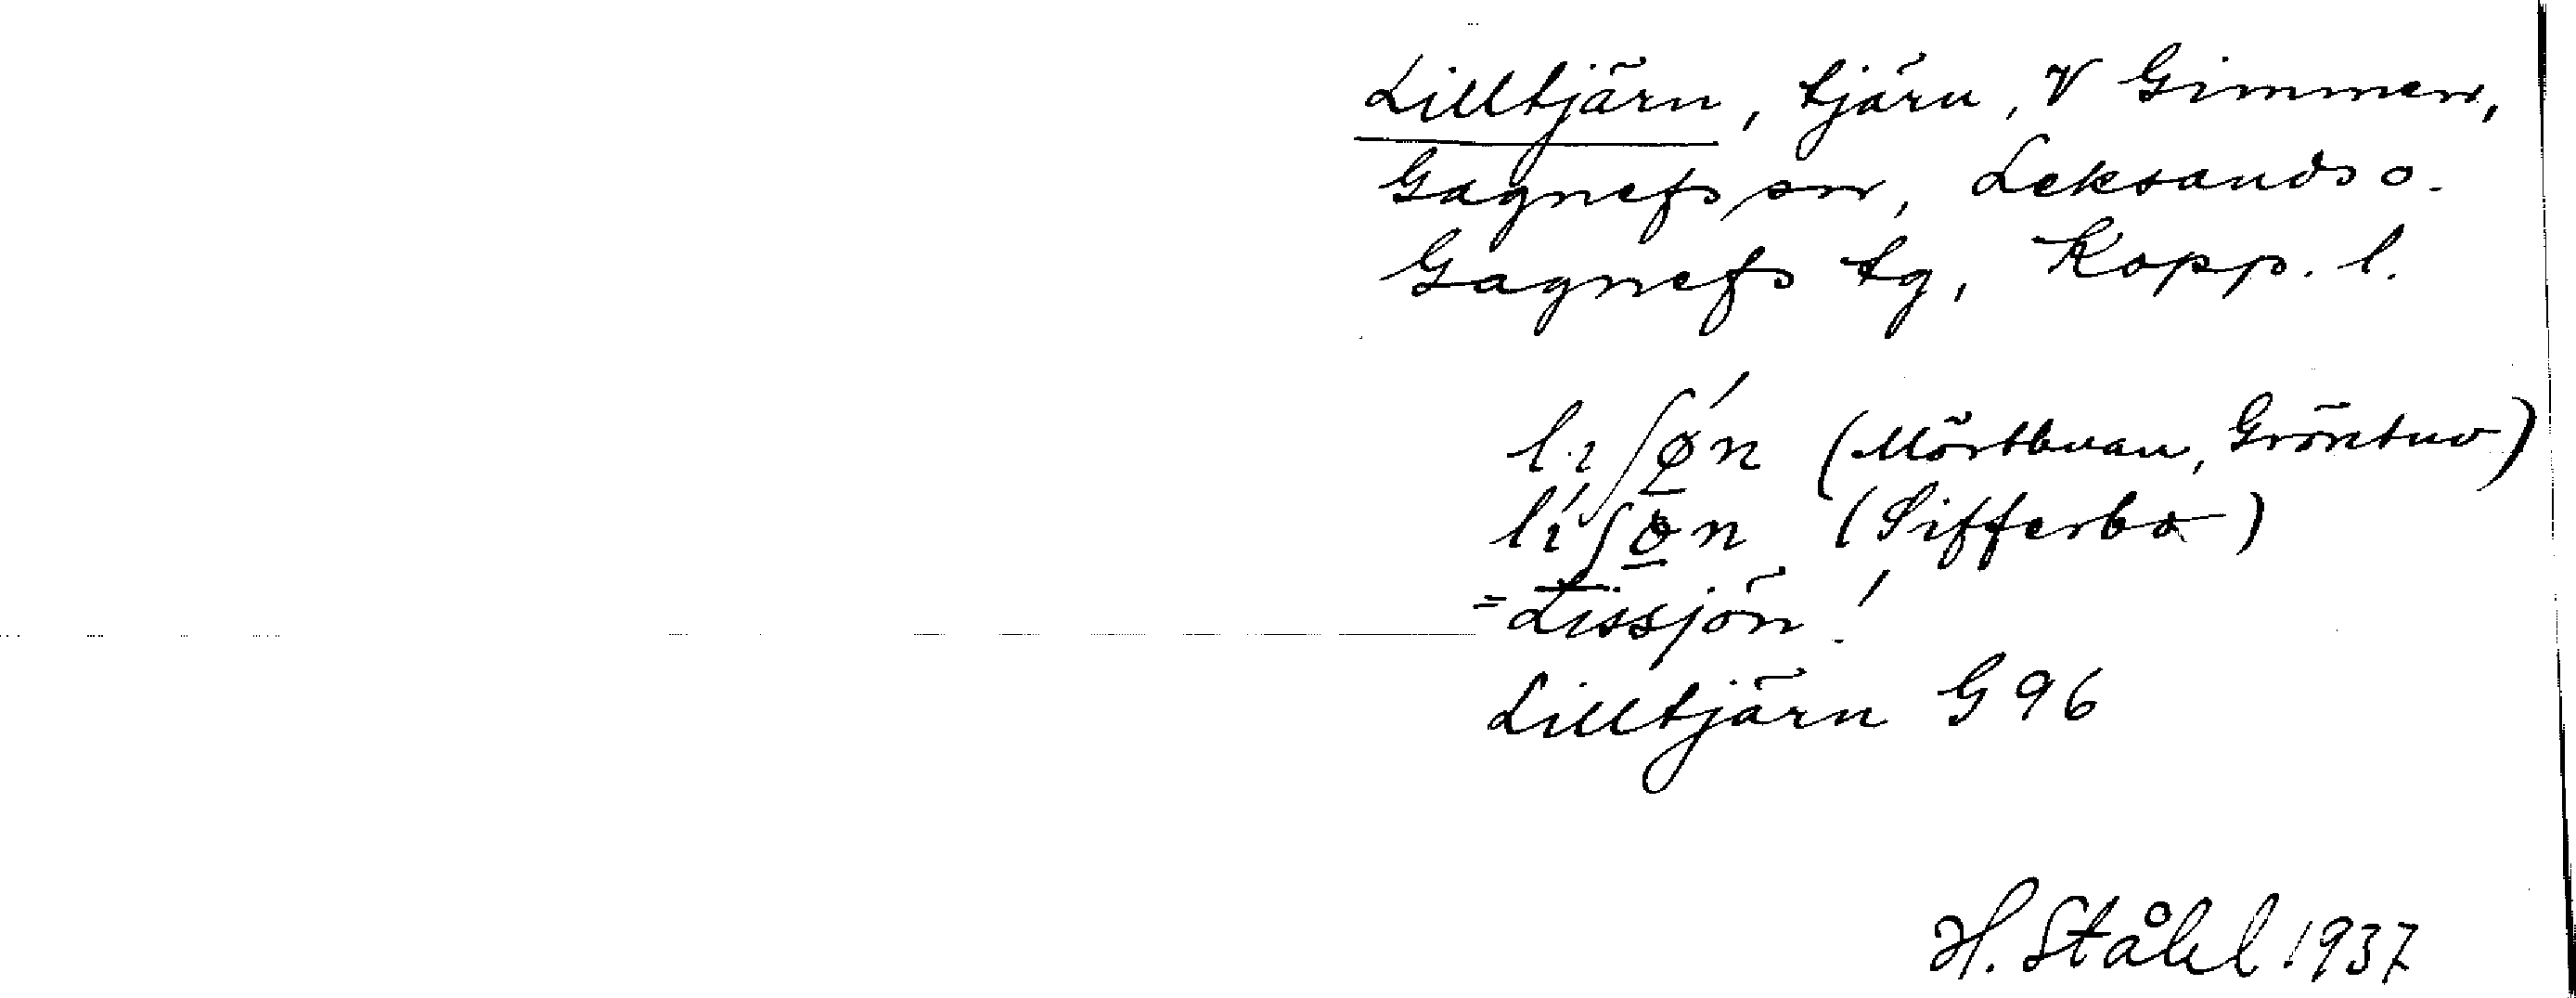 Lilltjärn, tjärn, V Gimmen,
Gagnefs sn, Leksands o.
Gagnefs tg, Kopp. l.
(Mörtbuan, Gröntuv)
(Sifferbo)
= Lissjön!
Lilltjärn G 96
H. Ståhl 1937